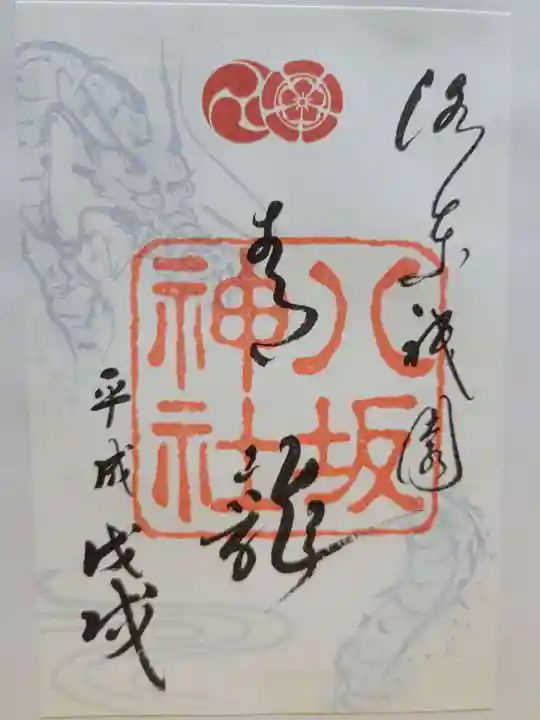 洛東祇園
青龍
八坂
神社
平成
戊戌